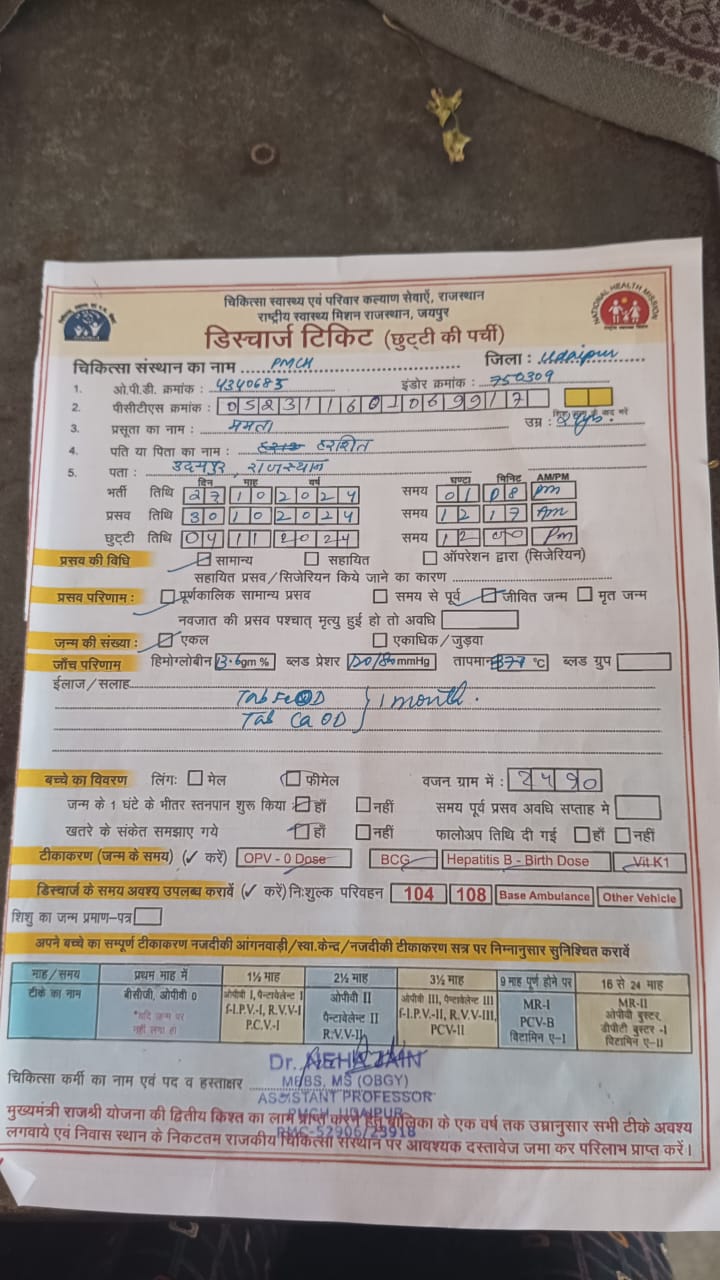 चिकित्सा स्वास्थ्य एवं परिवार कल्याण सेवाऐं, राजस्थान
राष्ट्रीय स्वास्थ्य मिशन राजस्थान, जयपुर
NATIONAL HEALTH MISSION
डिस्चार्ज टिकिट (छुट्टी की पर्ची)
चिकित्सा संस्थान का नाम PMCH जिला : Udaipur
1. ओ.पी.डी. क्रमांक : 4340685 इंडोर क्रमांक : 750309
2. पीसीटीएस क्रमांक :
3. प्रसूता का नाम : ममता उम्र :
4. पति या पिता का नाम : हरशित
5. पता : उदयपुर, राजस्थान
दिन माह वर्ष घण्टा मिनिट AM/PM
भर्ती तिथि 27 10 2024 समय 01 08 pm
प्रसव तिथि 30 10 2024 समय 12 17 Am
छुट्टी तिथि 04 11 2024 समय 12 00 Pm
प्रसव की विधि सामान्य सहायित ऑपरेशन द्वारा (सिजेरियन)
सहायित प्रसव/सिजेरियन किये जाने का कारण
प्रसव परिणाम : पूर्णकालिक सामान्य प्रसव समय से पूर्व जीवित जन्म मृत जन्म
नवजात की प्रसव पश्चात् मृत्यु हुई हो तो अवधि
जन्म की संख्या : एकल एकाधिक/जुड़वा
जाँच परिणाम हिमोग्लोबीन 13.6 gm % ब्लड प्रेशर mmHg तापमान °C ब्लड ग्रुप
ईलाज/सलाह
Tab Fe OD } 1 month.
Tab Ca OD
बच्चे का विवरण लिंगः मेल फीमेल वजन ग्राम में : 2490
जन्म के 1 घंटे के भीतर स्तनपान शुरू किया हाँ नहीं समय पूर्व प्रसव अवधि सप्ताह मे
खतरे के संकेत समझाए गये हाँ नहीं फालोअप तिथि दी गई हाँ नहीं
टीकाकरण (जन्म के समय) (✓ करें) OPV - 0 Dose BCG Hepatitis B - Birth Dose Vit K1
डिस्चार्ज के समय अवश्य उपलब्ध करावें (✓ करें) निःशुल्क परिवहन 104 108 Base Ambulance Other Vehicle
शिशु का जन्म प्रमाण-पत्र
अपने बच्चे का सम्पूर्ण टीकाकरण नजदीकी आंगनवाड़ी/स्वा.केन्द्र/नजदीकी टीकाकरण सत्र पर निम्नानुसार सुनिश्चित करावें
माह/समय प्रथम माह में 1½ माह 2½ माह 3½ माह 9 माह पूर्ण होने पर 16 से 24 माह
टीके का नाम बीसीजी, ओपीवी 0 ओपीवी I, पैन्टावेलेन्ट I ओपीवी II ओपीवी III, पेन्टावेलेर III MR-I MR-II
*यदि जन्म पर नहीं लगा हो f-I.P.V.-I, R.V.V-I पैन्टावेलेंट II f-I.P.V.-II, R.V.V-III, PCV-B ओपीवी बूस्टर,
P.C.V.-I R.V.V-II PCV-II विटामिन ए-I डीपीटी बूस्टर -1
विटामिन ए-II
Dr. NEHA JAIN
MBBS, MS (OBGY)
चिकित्सा कर्मी का नाम एवं पद व हस्ताक्षर ASSISTANT PROFESSOR
PMCH, UDAIPUR
मुख्यमंत्री राजश्री योजना की द्वितीय किश्त का लाभ प्राप्त करने हेतु बालिका के एक वर्ष तक उम्रानुसार सभी टीके अवश्य
लगवाये एवं निवास स्थान के निकटतम राजकीय चिकित्सा संस्थान पर आवश्यक दस्तावेज जमा कर परिलाभ प्राप्त करें।